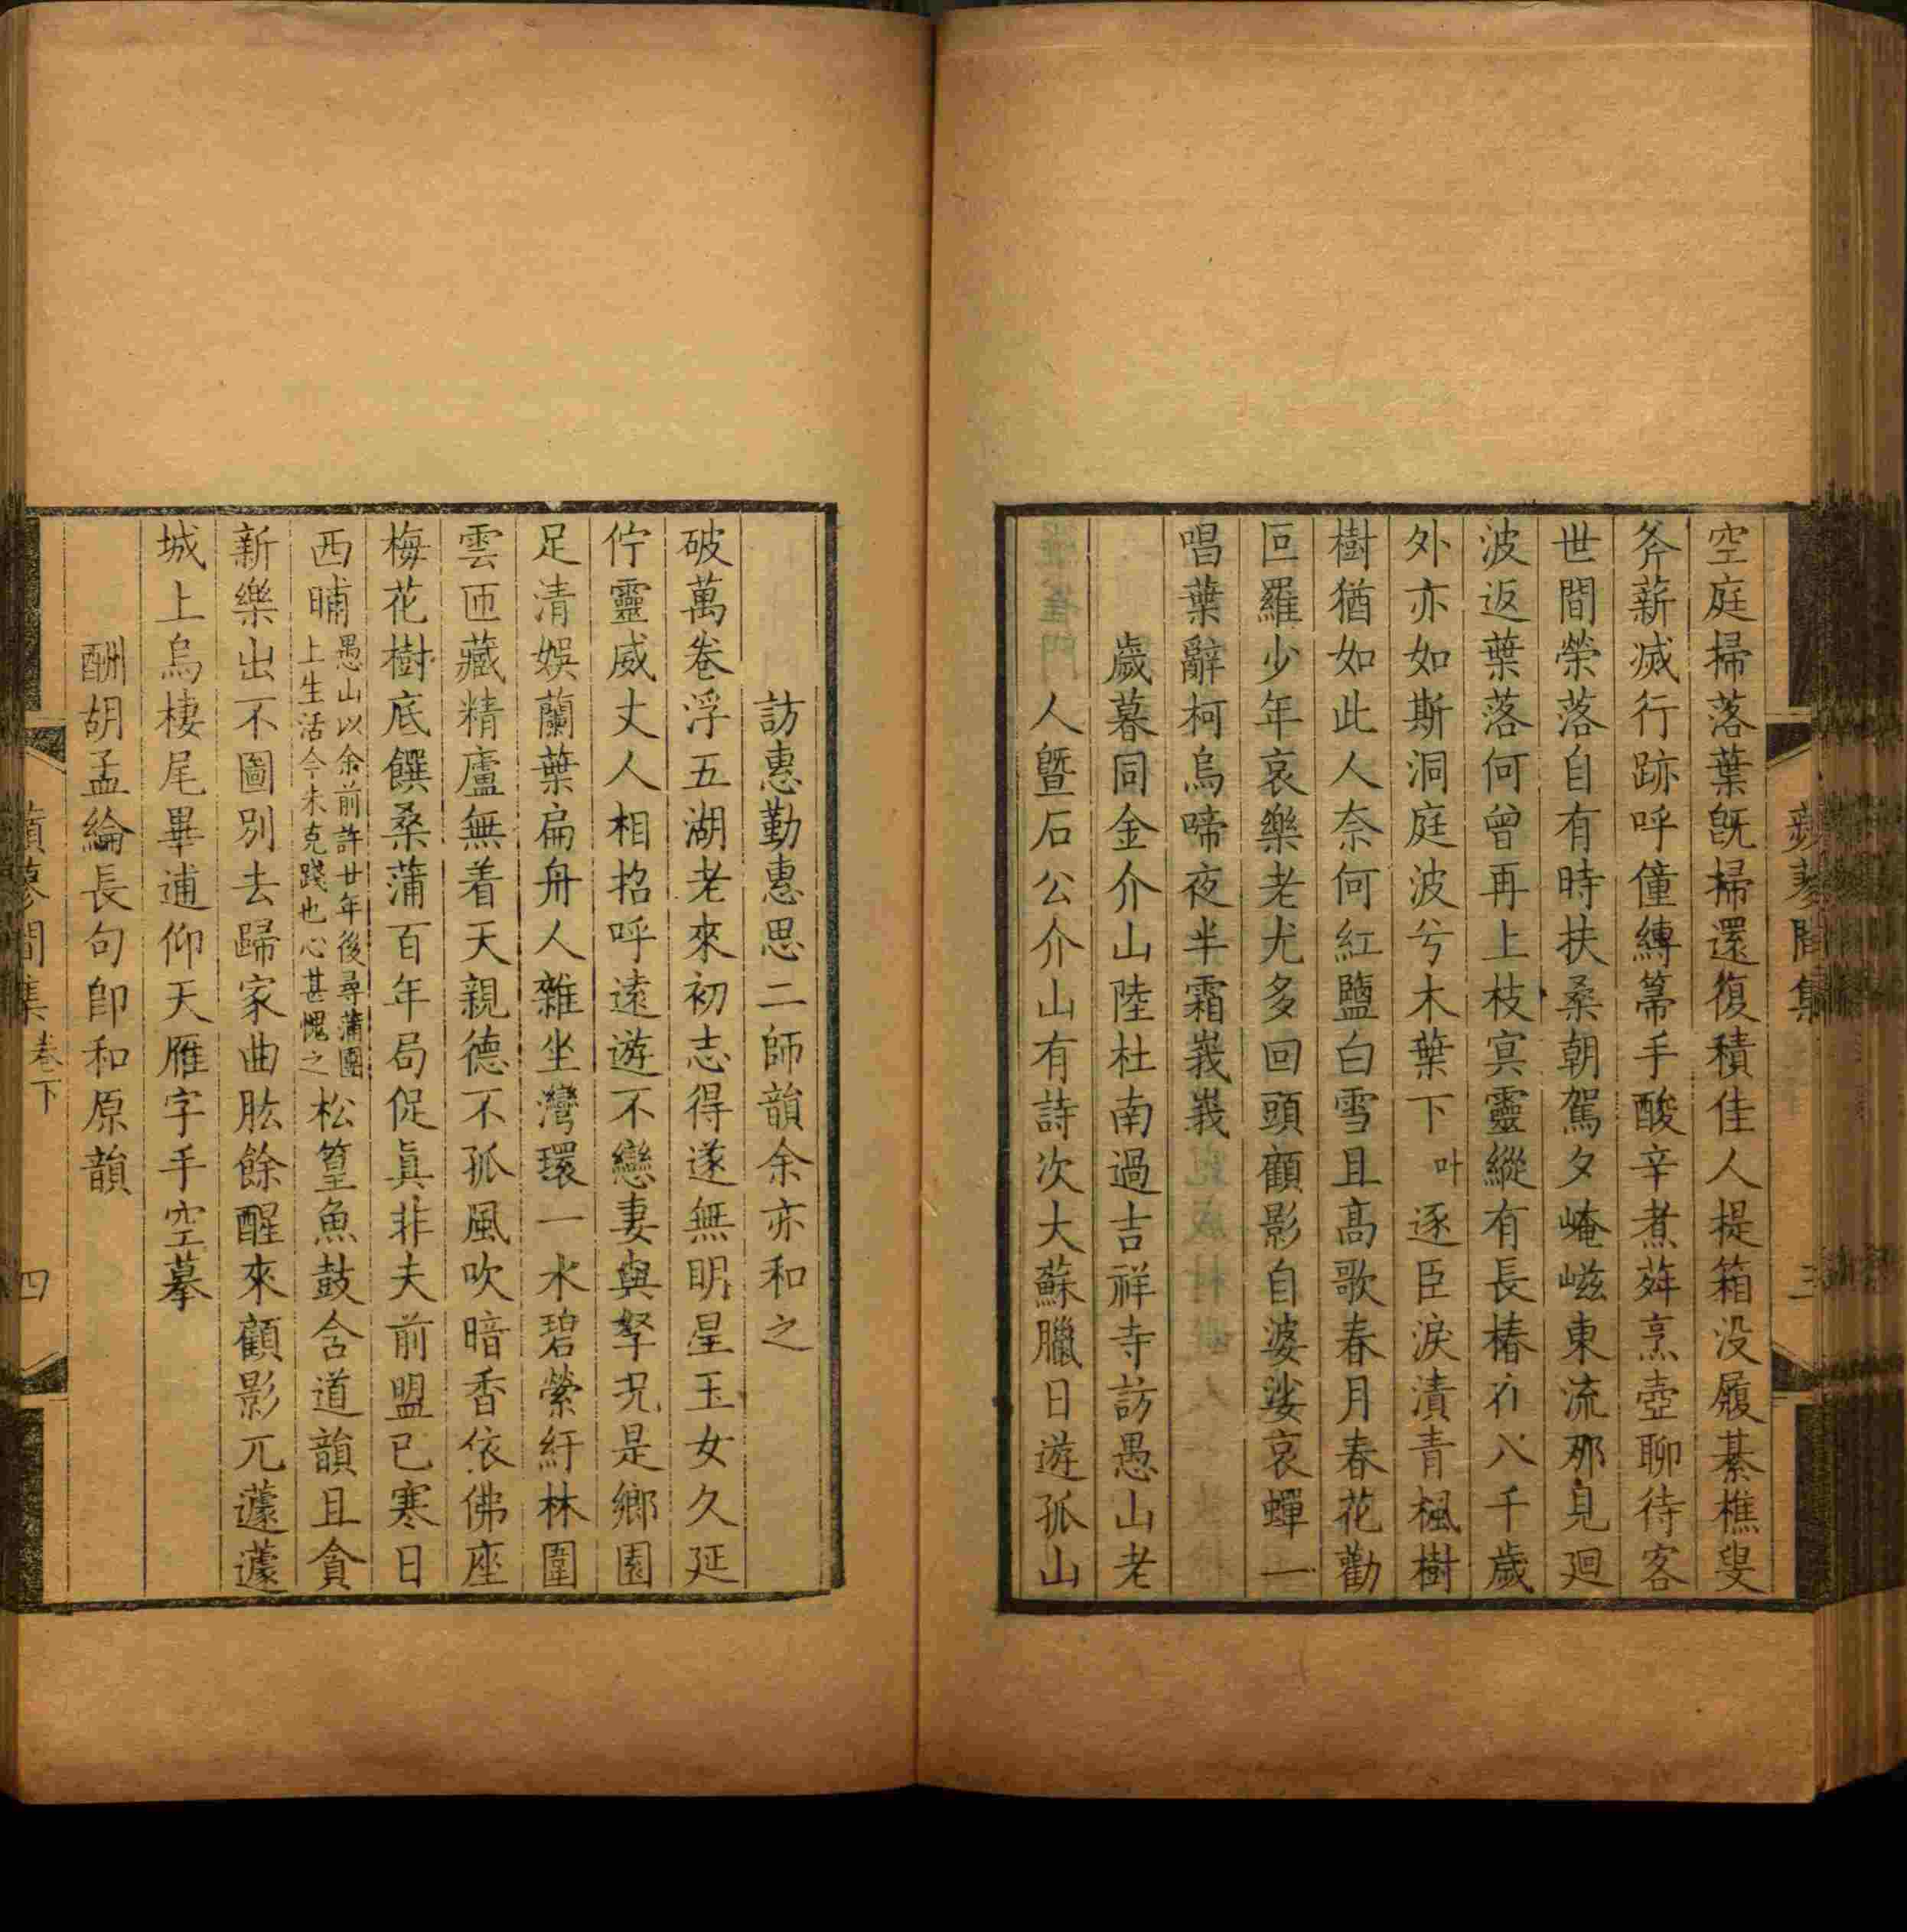 蘋蓼閒集
三
空庭掃落葉旣掃還復積佳人提箱没履綦樵叟
斧薪滅行跡呼僮縛箒手酸辛煮茻烹壺聊待客
世間榮落自有時扶桑朝駕夕崦嵫東流那見廻
波返葉落何曾再上枝冥靈縱有長椿在八千歲
外亦如斯洞庭波兮木葉下叶逐臣淚漬青楓樹
樹猶如此人奈何紅鹽白雪且高歌春月春花勸
叵羅少年哀樂老尤多回頭顧影自婆娑哀蟬一
唱葉辭柯烏啼夜半霜峩峩
歲暮同金介山陸杜南過吉祥寺訪愚山老
人曁石公介山有詩次大蘇臘日遊孤山
訪惠勤惠思二師韻余亦和之
破萬卷浮五湖老來初志得遂無明星玉女久延
佇靈威丈人相招呼遠遊不戀妻與孥況是鄉園
足清娛蘭葉扁舟人雜坐灣環一水碧縈紆林圍
雲匝藏精廬無着天親德不孤風吹暗香依佛座
梅花樹底饌桑蒲百年局促眞非夫前盟已寒日
西晡愚山以余前許廿年後尋蒲團
上生活今未克踐也心甚愧之松篁魚鼓含道韻且貪
新樂出不圖別去歸家曲肱餘醒來顧影兀蘧蘧
城上烏棲尾畢逋仰天雁字手空摹
酬胡孟綸長句卽和原韻
蘋蓼閒集卷下
四